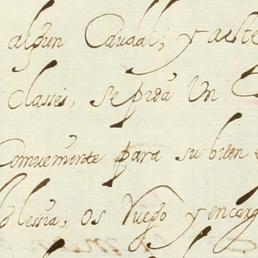 algun Caudal; y a este
Clases, se pida Un
Combeniente para su bien
Yglessia, os Ruego y encarg